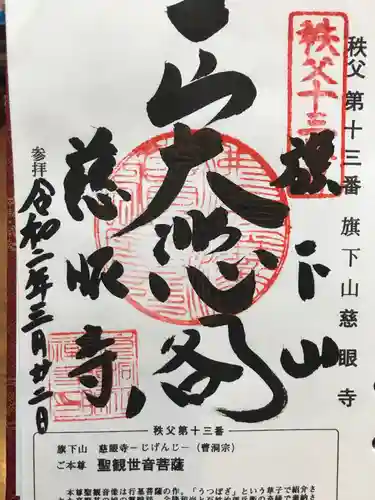 秩父 第十三番 旗下山慈眼寺
秩父十三
旗下山
大悲閣
慈眼寺
参拝
令和二年三月廿二日
秩父第十三番
旗下山 慈眼寺ーじげんじー(曹洞宗)
ご本尊 聖観世音菩薩
本尊聖観世音像は行基菩薩の作。「うつぼざ」という草子で紹介さ